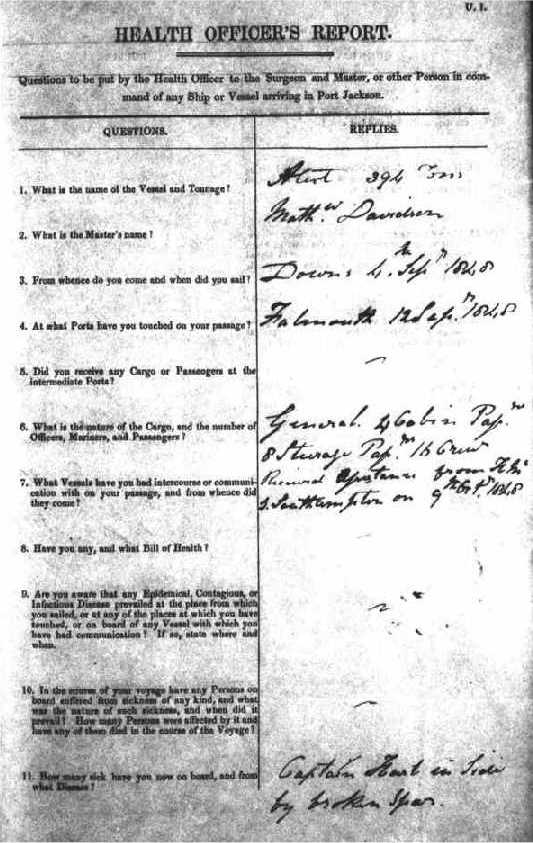 U. 1.
HEALTH OFFICER'S REPORT.
Questions to be put by the Health Officer to the Surgeon and Master, or other Person in com-
mand of any Ship or Vessel arriving in Port Jackson.
QUESTIONS.
REPLIES.
1. What is the name of the Vessel and Tonnage?
394 Tons
2. What is the Master's name?
Mathw. Davidson
3. From whence do you come and when did you sail?
Downs 4th Sepr 1848
4. At what Ports have you touched on your passage?
Falmouth 12 Sepr. 1848
5. Did you receive any Cargo or Passengers at the
Intermediate Ports?
6. What is the nature of the Cargo, and the number of
Officers, Mariners, and Passengers?
General. 4 Cabin Pasrs
8 Steerage Pasrs 14 Crew
7. What Vessels have you had intercourse or communi-
cation with on your passage, and from whence did
they come?
Received from H.M.
S. Southampton on 9th Octr. 1848
8. Have you any, and what Bill of Health?
9. Are you aware that any Epidemical, Contagious, or
Infectious Disease prevailed at the place from which
you sailed, or at any of the places at which you have
touched, or on board of any Vessel with which you
have had communication? If so, state where and
when.
10. In the course of your voyage have any Persons on
board suffered from sickness of any kind, and what
was the nature of such sickness, and when did it
prevail? How many Persons were affected by it and
have any of them died in the course of the Voyage?
11. How many sick have you now on board, and from
what Disease?
Captain Hurt in Side
by broken Spar.